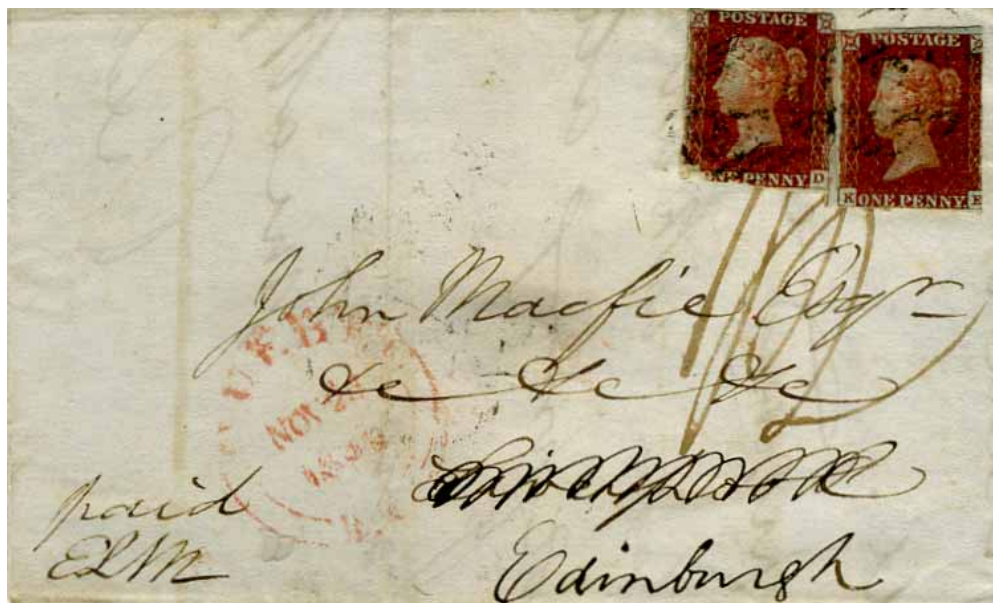 POSTAGE
ONE PENNY D
POSTAGE
K ONE PENNY. E
John Macfie Esqr
&c &c &c
Edinburgh
NOV 2
paid
ELM